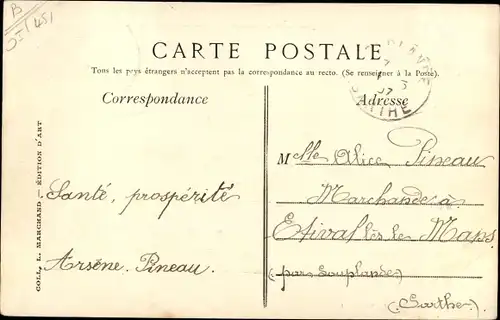 B
CARTE POSTALE
Tous les pays étrangers n'acceptent pas la correspondance au recto. (Se renseigner à la Poste).
Correspondance
Adresse
SARTHE
Mlle Alice Pineau
Marchande à
Etival lès le Mans
(par Souplande)
(Sarthe)
Santé, prospérité
Arsène Pineau.
COLL. L. MARCHAND, — ÉDITION D'ART